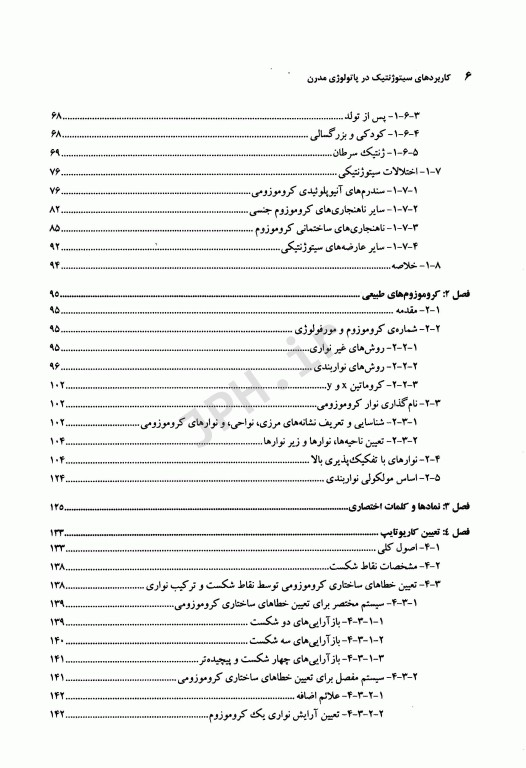 ۶ کاربردهای سیتوژنتیک در پاتولوژی مدرن
۳-۶-۱- پس از تولد ۶۸
۴-۶-۱- کودکی و بزرگسالی ۶۸
۵-۶-۱- ژنتیک سرطان ۶۹
۷-۱- اختلالات سیتوژنتیکی ۷۶
۱-۷-۱- سندرم‌های آنیوپلوئیدی کروموزومی ۷۶
۲-۷-۱- سایر ناهنجاری‌های کروموزوم جنسی ۸۲
۳-۷-۱- ناهنجاری‌های ساختمانی کروموزوم ۸۵
۴-۷-۱- سایر عارضه‌های سیتوژنتیکی ۹۲
۸-۱- خلاصه ۹۴
فصل ۲: کروموزوم‌های طبیعی ۹۵
۱-۲- مقدمه ۹۵
۲-۲- شماره‌ی کروموزوم و مورفولوژی ۹۵
۱-۲-۲- روش‌های غیر نواری ۹۵
۲-۲-۲- روش‌های نواربندی ۹۶
۳-۲-۲- کروماتین x و y ۱۰۲
۳-۲- نام‌گذاری نوار کروموزومی ۱۰۲
۱-۳-۲- شناسایی و تعریف نشانه‌های مرزی، نواحی، و نوارهای کروموزومی ۱۰۲
۲-۳-۲- تعیین ناحیه‌ها، نوارها و زیر نوارها ۱۰۴
۴-۲- نوارهای با تفکیک‌پذیری بالا ۱۰۴
۵-۲- اساس مولکولی نواربندی ۱۲۴
فصل ۳: نمادها و کلمات اختصاری ۱۲۵
فصل ۴: تعیین کاریوتایپ ۱۳۳
۱-۴- اصول کلی ۱۳۳
۲-۴- مشخصات نقاط شکست ۱۳۸
۳-۴- تعیین خطاهای ساختاری کروموزومی توسط نقاط شکست و ترکیب نواری ۱۳۸
۱-۳-۴- سیستم مختصر برای تعیین خطاهای ساختاری کروموزومی ۱۳۹
۱-۱-۳-۴- بازآرایی‌های دو شکست ۱۳۹
۲-۱-۳-۴- بازآرایی‌های سه شکست ۱۴۰
۳-۱-۳-۴- بازآرایی‌های چهار شکست و پیچیده‌تر ۱۴۱
۲-۳-۴- سیستم مفصل برای تعیین خطاهای ساختاری کروموزومی ۱۴۱
۱-۲-۳-۴- علائم اضافه ۱۴۲
۲-۲-۳-۴- تعیین آرایش نواری یک کروموزوم ۱۴۲
JPH.ir